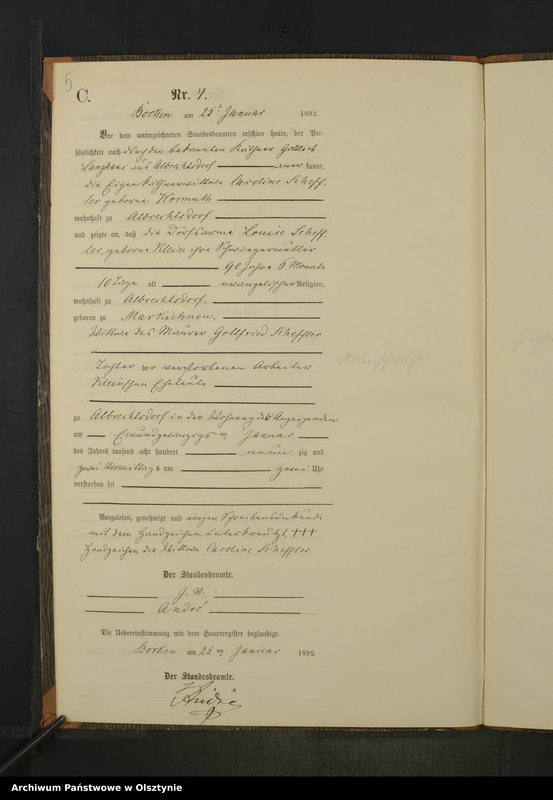 5
C.
Nr. 4.
Borken am 25ⁿ Januar 1892.
Vor dem unterzeichneten Standesbeamten erschien heute, der Per-
sönlichkeit nach durch den bekannten Käthner Gottlieb
Langhans aus Albrechtsdorf aner kannt,
die Eigenkäthnerwittwe Caroline Scheff-
ler geborene Kormuth
wohnhaft zu Albrechtsdorf
und zeigte an, daß die Dorfsarme Louise Scheff-
ler, geborene Klein ihre Schwiegermutter
90 Jahre 6 Monate
10 Tage alt evangelischer Religion,
wohnhaft zu Albrechtsdorf,
geboren zu Markeinen,
Wittwe des Maurer Gottfried Scheffler
Altersschwäche
Tochter der verstorbenen Arbeiter
Kleinschen Eheleute
zu Albrechtsdorf in der Wohnung der Anzeigenden
am Einundzwanzigsten Januar
des Jahres tausend acht hundert neun zig und
zwei Vormittags um zwei Uhr
verstorben sei
Vorgelesen, genehmigt und wegen Schreibensunkunde
mit dem Handzeichen unterkreuzt. +++
Handzeichen der Wittwe Caroline Scheffler.
Der Standesbeamte.
J. V.
André
Die Uebereinstimmung mit dem Hauptregister beglaubigt.
Borken am 25ten Januar 1892.
Der Standesbeamte.
André
Archiwum Państwowe w Olsztynie